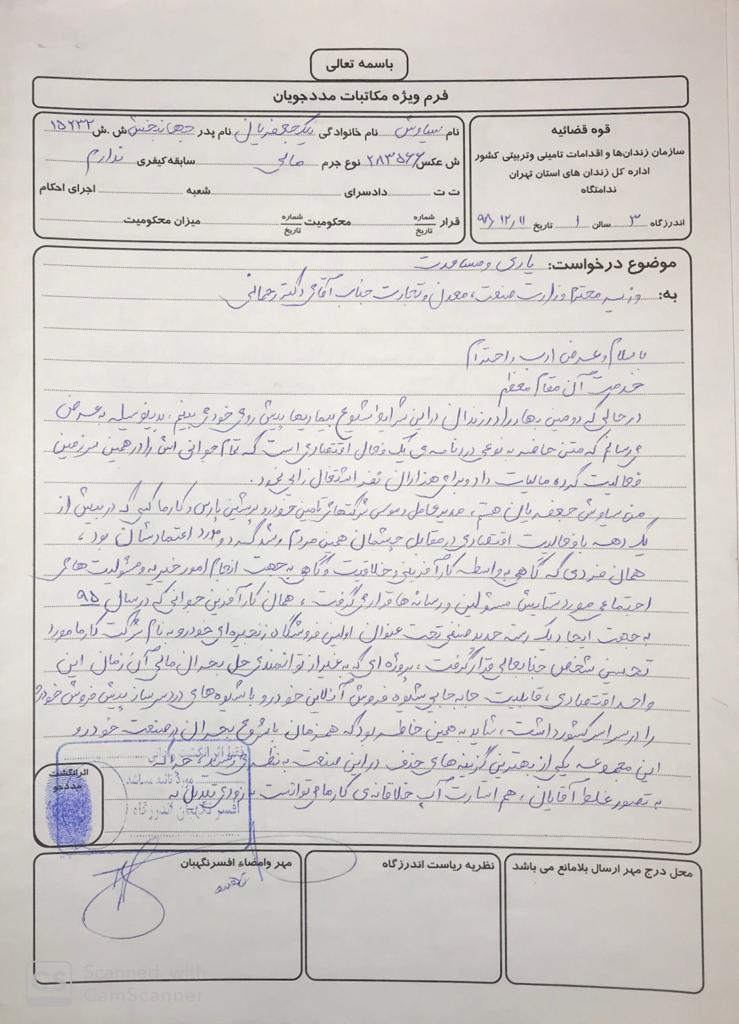 باسمه تعالی
فرم ویژه مکاتبات مددجویان
قوه قضائیه
سازمان زندان‌ها و اقدامات تامینی وتربیتی کشور
اداره کل زندان های استان تهران
ندامتگاه
اندرزگاه ۳ سالن ۱ تاریخ ۹۸/۱۲/۱۱
نام سیاوش نام خانوادگی نام پدر ش .ش ۱۵۲۳۲
ش عکس ۲۸۳۵۶۶ نوع جرم مالی سابقه کیفری ندارم
ت ت دادسرای شعبه اجرای احکام
قرار شماره تاریخ محکومیت شماره تاریخ میزان محکومیت
موضوع درخواست: یاری و مساعدت
به: وزیر محترم وزارت صنعت، معدن و تجارت جناب آقای دکتر رحمانی
با سلام و عرض ادب و احترام
خدمت آن مقام معظم
در حالی که دومین بهار را در زندان در این شرایط شیوع بیماریها پیش روی خود می بینم، بدینوسیله به عرض
می رسانم که متن حاضر به نوعی دردنامه ی یک فعال اقتصادی است که تمام جوانی اش را در همین سرزمین
فعالیت کرده مالیات داد و برای هزاران نفر اشتغال زایی نمود.
من سیاوش جعفریان هستم، مدیرعامل و موسس شرکتهای تامین خودرو پرشین پارس و کارما کسی که در بیش از
یک دهه با فعالیت اقتصادی در مقابل چشمان همین مردم رشد کرد و مورد اعتمادشان بود،
همان فردی که گاهی به واسطه کارآفرینی و خلاقیت و گاهی به جهت انجام امور خیریه و مسئولیت های
اجتماعی مورد ستایش مسئولین و رسانه ها قرار می گرفت، همان کارآفرین جوانی که در سال ۹۵
به جهت ایجاد یک رسته جدید صنفی تحت عنوان اولین فروشگاه زنجیره ای خودرو به نام شرکت کارما مورد
تحسین شخص جنابعالی قرار گرفت، پروژه ای که به غیر از توانمندی حل بحران مالی آن زمان این
واحد اقتصادی، قابلیت جابه جایی شیوه فروش آنلاین خودرو با شیوه های دردسرساز پیش فروش خودرو
را در سراسر کشور داشت، شاید به همین خاطر بود که همزمان با شروع بحران در صنعت خودرو
این مجموعه یکی از بهترین گزینه های حذف در این صنعت به نظر می رسید، چرا که
به تصور غلط آقایان، هم استارت آپ خلاقانه ی کارما می توانست به زودی تبدیل به
اثر انگشت
مددجو
فقط اثر انگشت
مورد تائید میباشد
افسر نگهبان اندرزگاه
محل درج مهر ارسال بلامانع می باشد
نظریه ریاست اندرزگاه
مهر وامضاء افسرنگهبان
CS Scanned with
CamScanner